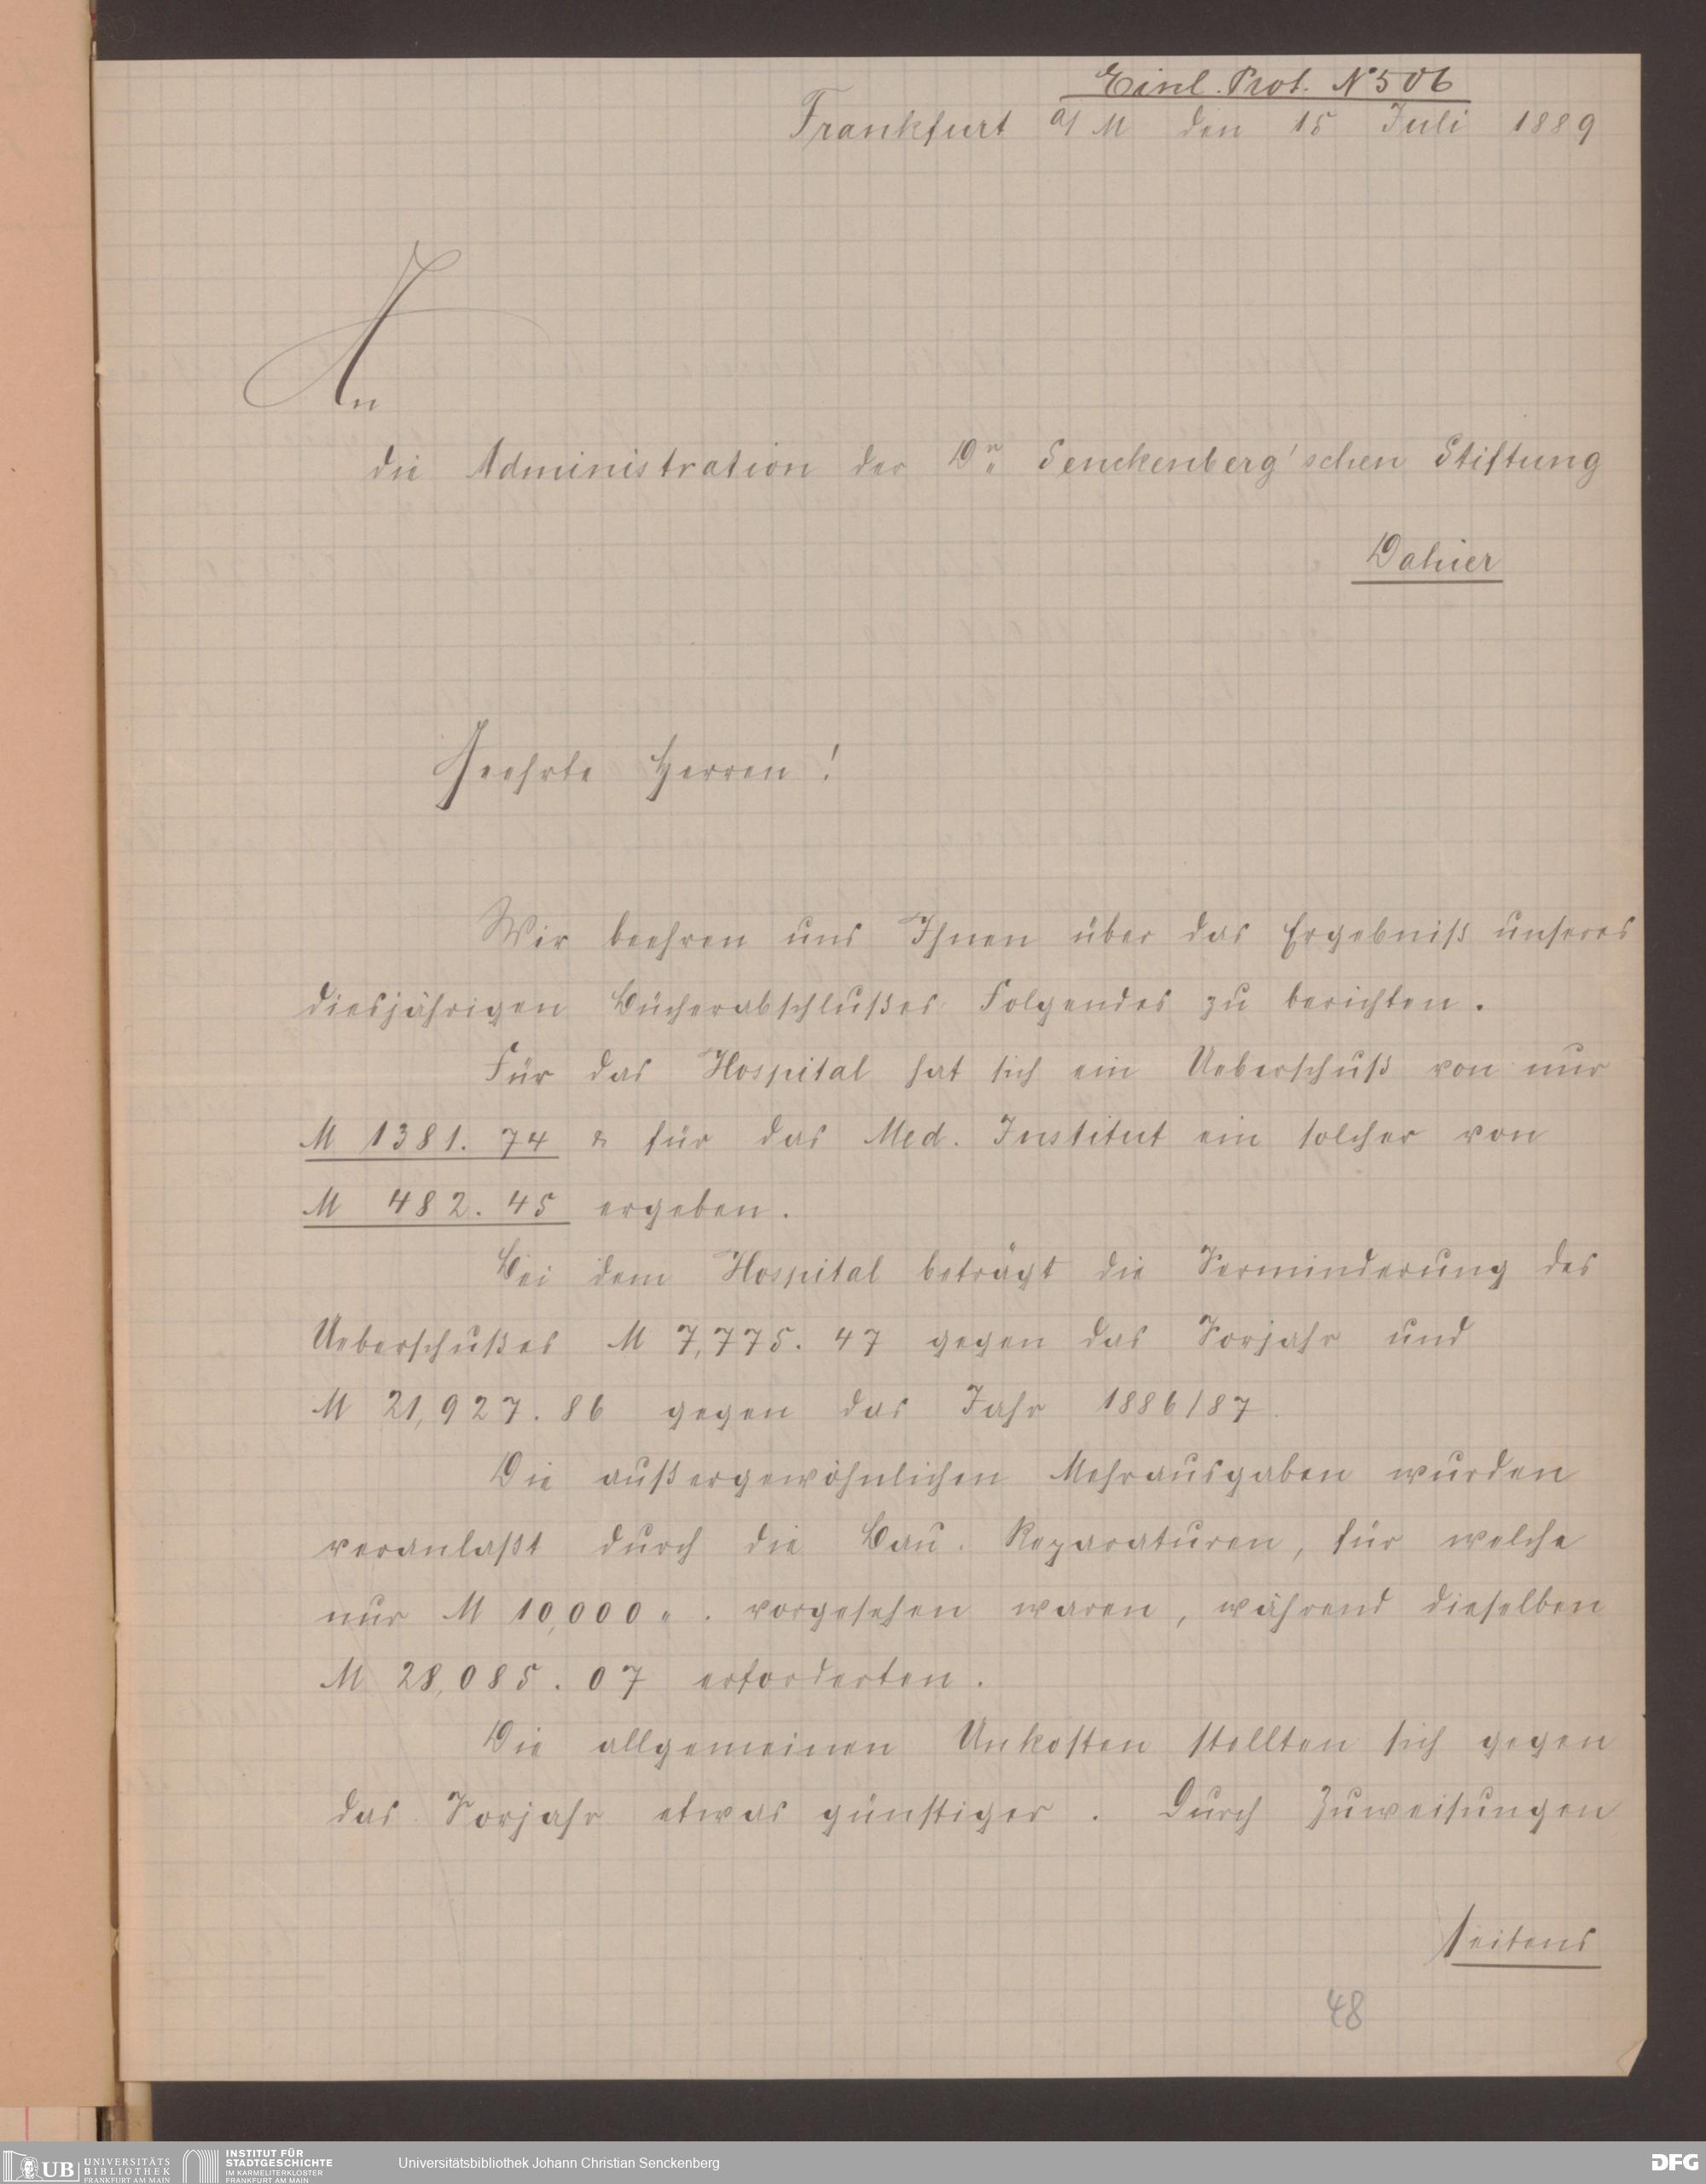 Einl. Prot. N° 506
Frankfurt a/M den 15 Juli 1889
An
die Administration der Dr. Senckenberg'schen Stiftung
Dahier
Geehrte Herren!
Wir beehren uns Ihnen über das Ergebniß unseres
diesjährigen Bücherabschlußes Folgendes zu berichten.
Für das Hospital hat sich ein Ueberschuß von nur
M 1381. 74 & für das Med. Institut ein solcher von
M 482. 45 ergeben.
Bei dem Hospital beträgt die Verminderung des
Ueberschußes M 7,775. 47 gegen das Vorjahr und
M 21,927. 86 gegen das Jahr 1886/87.
Die außergewöhnlichen Mehrausgaben wurden
veranlaßt durch die Bau. Reparaturen, für welche
nur M 10,000 „. vorgesehen waren, während dieselben
M 28,085. 07 erforderten.
Die allgemeinen Unkosten stellten sich gegen
das Vorjahr etwas günstiger. Durch Zuweisungen
seitens
48
UB UNIVERSITÄTS BIBLIOTHEK FRANKFURT AM MAIN
INSTITUT FÜR STADTGESCHICHTE IM KARMELITERKLOSTER FRANKFURT AM MAIN
Universitätsbibliothek Johann Christian Senckenberg
DFG